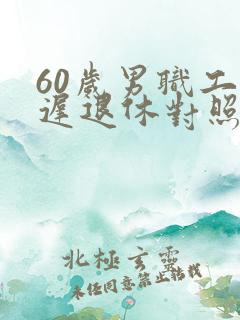 60歲男職工
遲退休對照
北極玄靈
未经同意禁止转载